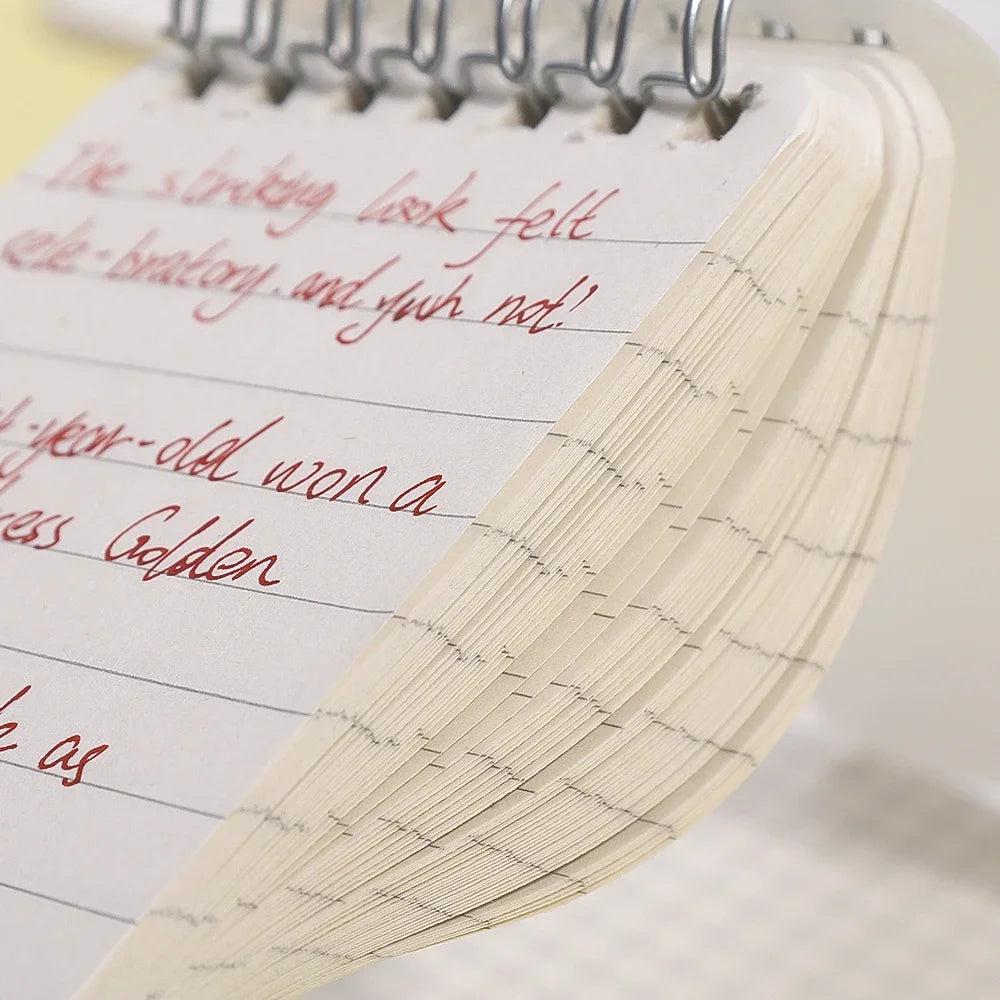 The striking look felt
cele-bratory. and yuh not!
-year-old won a
ress Golden
as